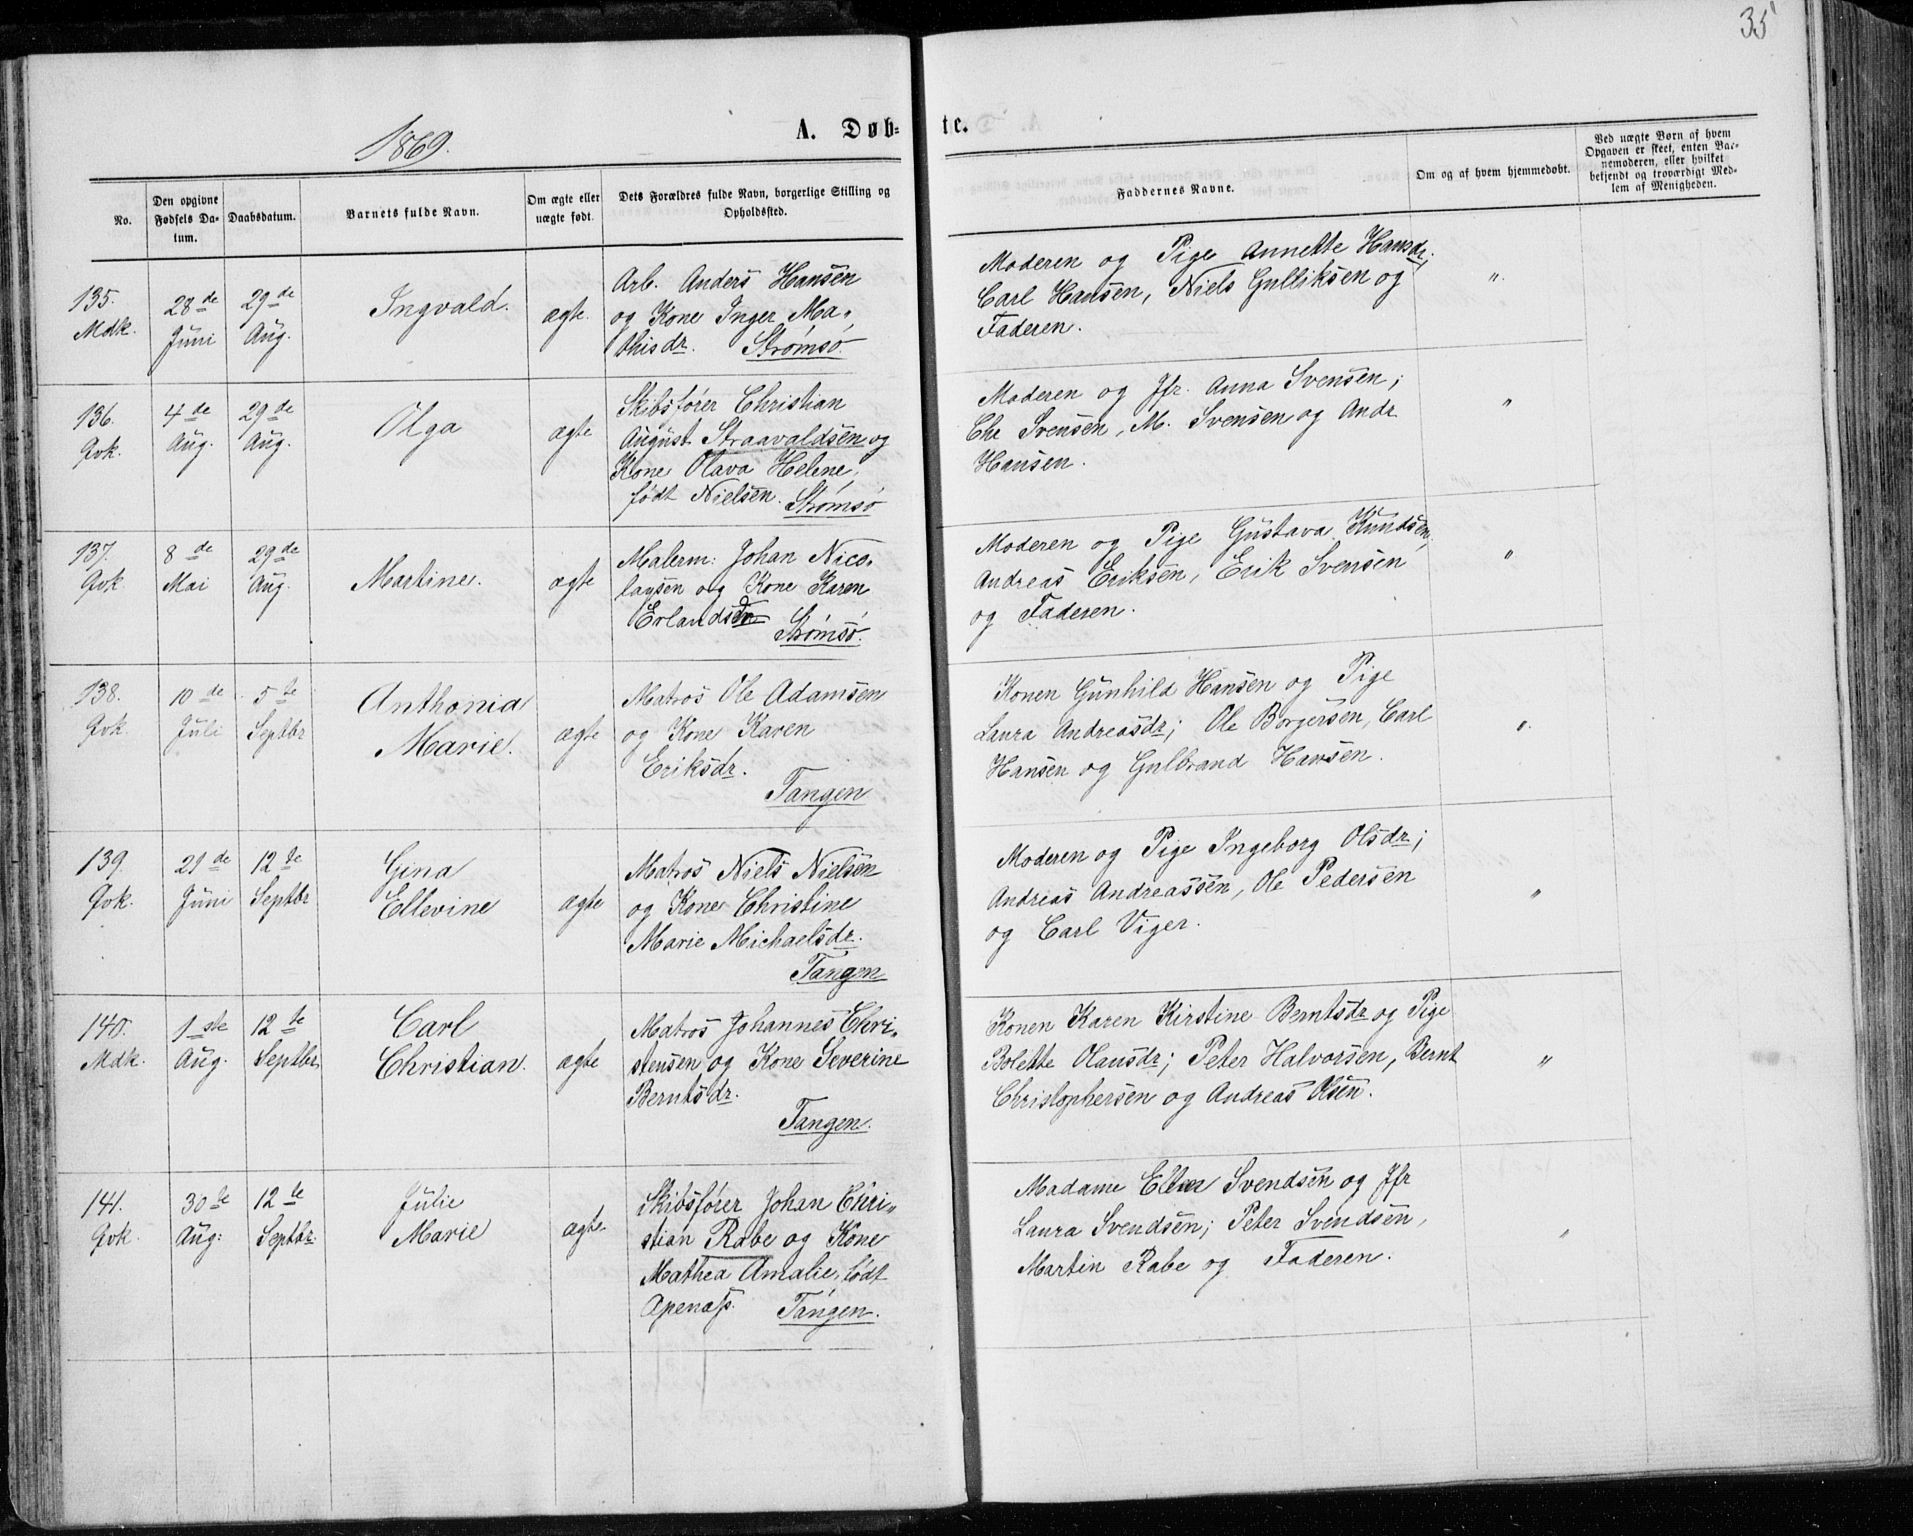 35
1869.
A. Døb-
te.
No.
Den opgivne
Fødsels Da-
tum.
Daabsdatum.
Barnets fulde Navn.
Om ægte eller
uægte født.
Dets Forældres fulde Navn, borgerlige Stilling og
Opholdssted.
Faddernes Navne.
Om og af hvem hjemmedøbt.
Ved uægte Børn af hvem
Opgaven er skeet, enten Bar-
nemoderen, eller hvilket
bekjendt og troværdigt Med-
lem af Menigheden.
135.
Mdk.
28de
Juni
29de
Aug.
Ingvald.
ægte.
Arb. Anders Hansen
og Kone Inger Ma„
thisdr. Strømsø.
Moderen og Pige Annette Hansdr,
Carl Hansen, Niels Gulliksen og
Faderen.
„
136.
Qvk.
4de
Aug.
29de
Aug.
Olga
ægte
Skibsfører Christian
August Straavaldsen og
Kone Olava Helene,
født Nielsen. Strømsø
Moderen og Jfr. Anna Svensen;
Chr Svensen, M. Svensen og Andr.
Hansen.
„
137.
Qvk
8de
Mai
29de
Aug.
Martine.
ægte
Malerm: Johan Nico„
laysen og Kone Karen
Erlandsdr
Strømsø.
Moderen og Pige Gustava Knudsen,
Andreas Eriksen, Erik Svensen
og Faderen.
„
138.
Qvk.
10de
Juli
5te
Septbr
Anthonia
Marie.
ægte
Matros Ole Adamsen
og Kone Karen
Eriksdr.
Tangen
Konen Gunhild Hansen og Pige
Laura Andreasdr; Ole Borgersen, Carl
Hansen og Gulbrand Hansen.
„
139.
Qvk.
21de
Juni
12te
Septbr
Gina
Ellevine
ægte
Matros Niels Nielsen
og Kone Christine
Marie Michaelsdr.
Tangen
Moderen og Pige Ingeborg Olsdr;
Andreas Andreassen, Ole Pedersen
og Carl Viger.
„
140.
Mdk.
1ste
Aug.
12te
Septbr
Carl
Christian.
ægte
Matros Johannes Chri„
stensen og Kone Severine
Berntsdr.
Tangen.
Konen Karen Kirstine Berntsdr og Pige
Bolette Olausdr; Peter Halvorsen, Bernt
Christophersen og Andreas Olsen.
„
141.
Qvk.
30te
Aug:
12te
Septbr.
Julie
Marie
ægte
Skibsfører Johan Chri„
stian Rabe og Kone
Mathea Amalie, født
Apenæs. Tangen.
Madame Ellen Svendsen og Jfr
Laura Svendsen; Peter Svendsen,
Martin Rabe og Faderen.
„